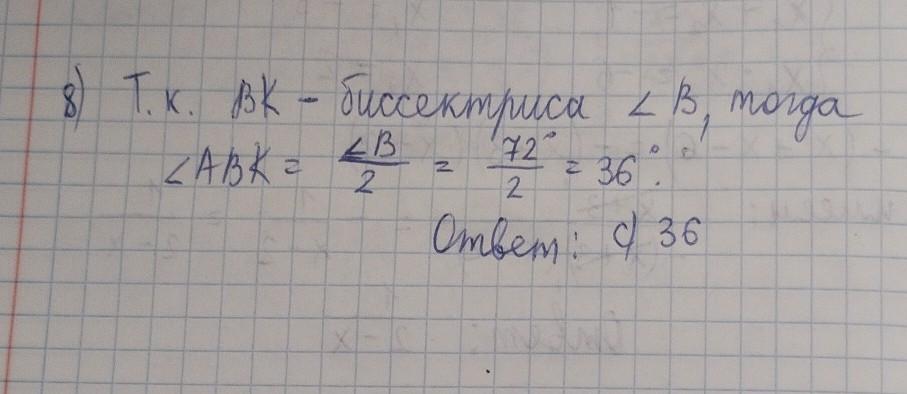 8) Т.к. ВК - биссектриса ∠В, тогда
∠АВК = ∠В/2 = 72°/2 = 36°.
Ответ: с) 36